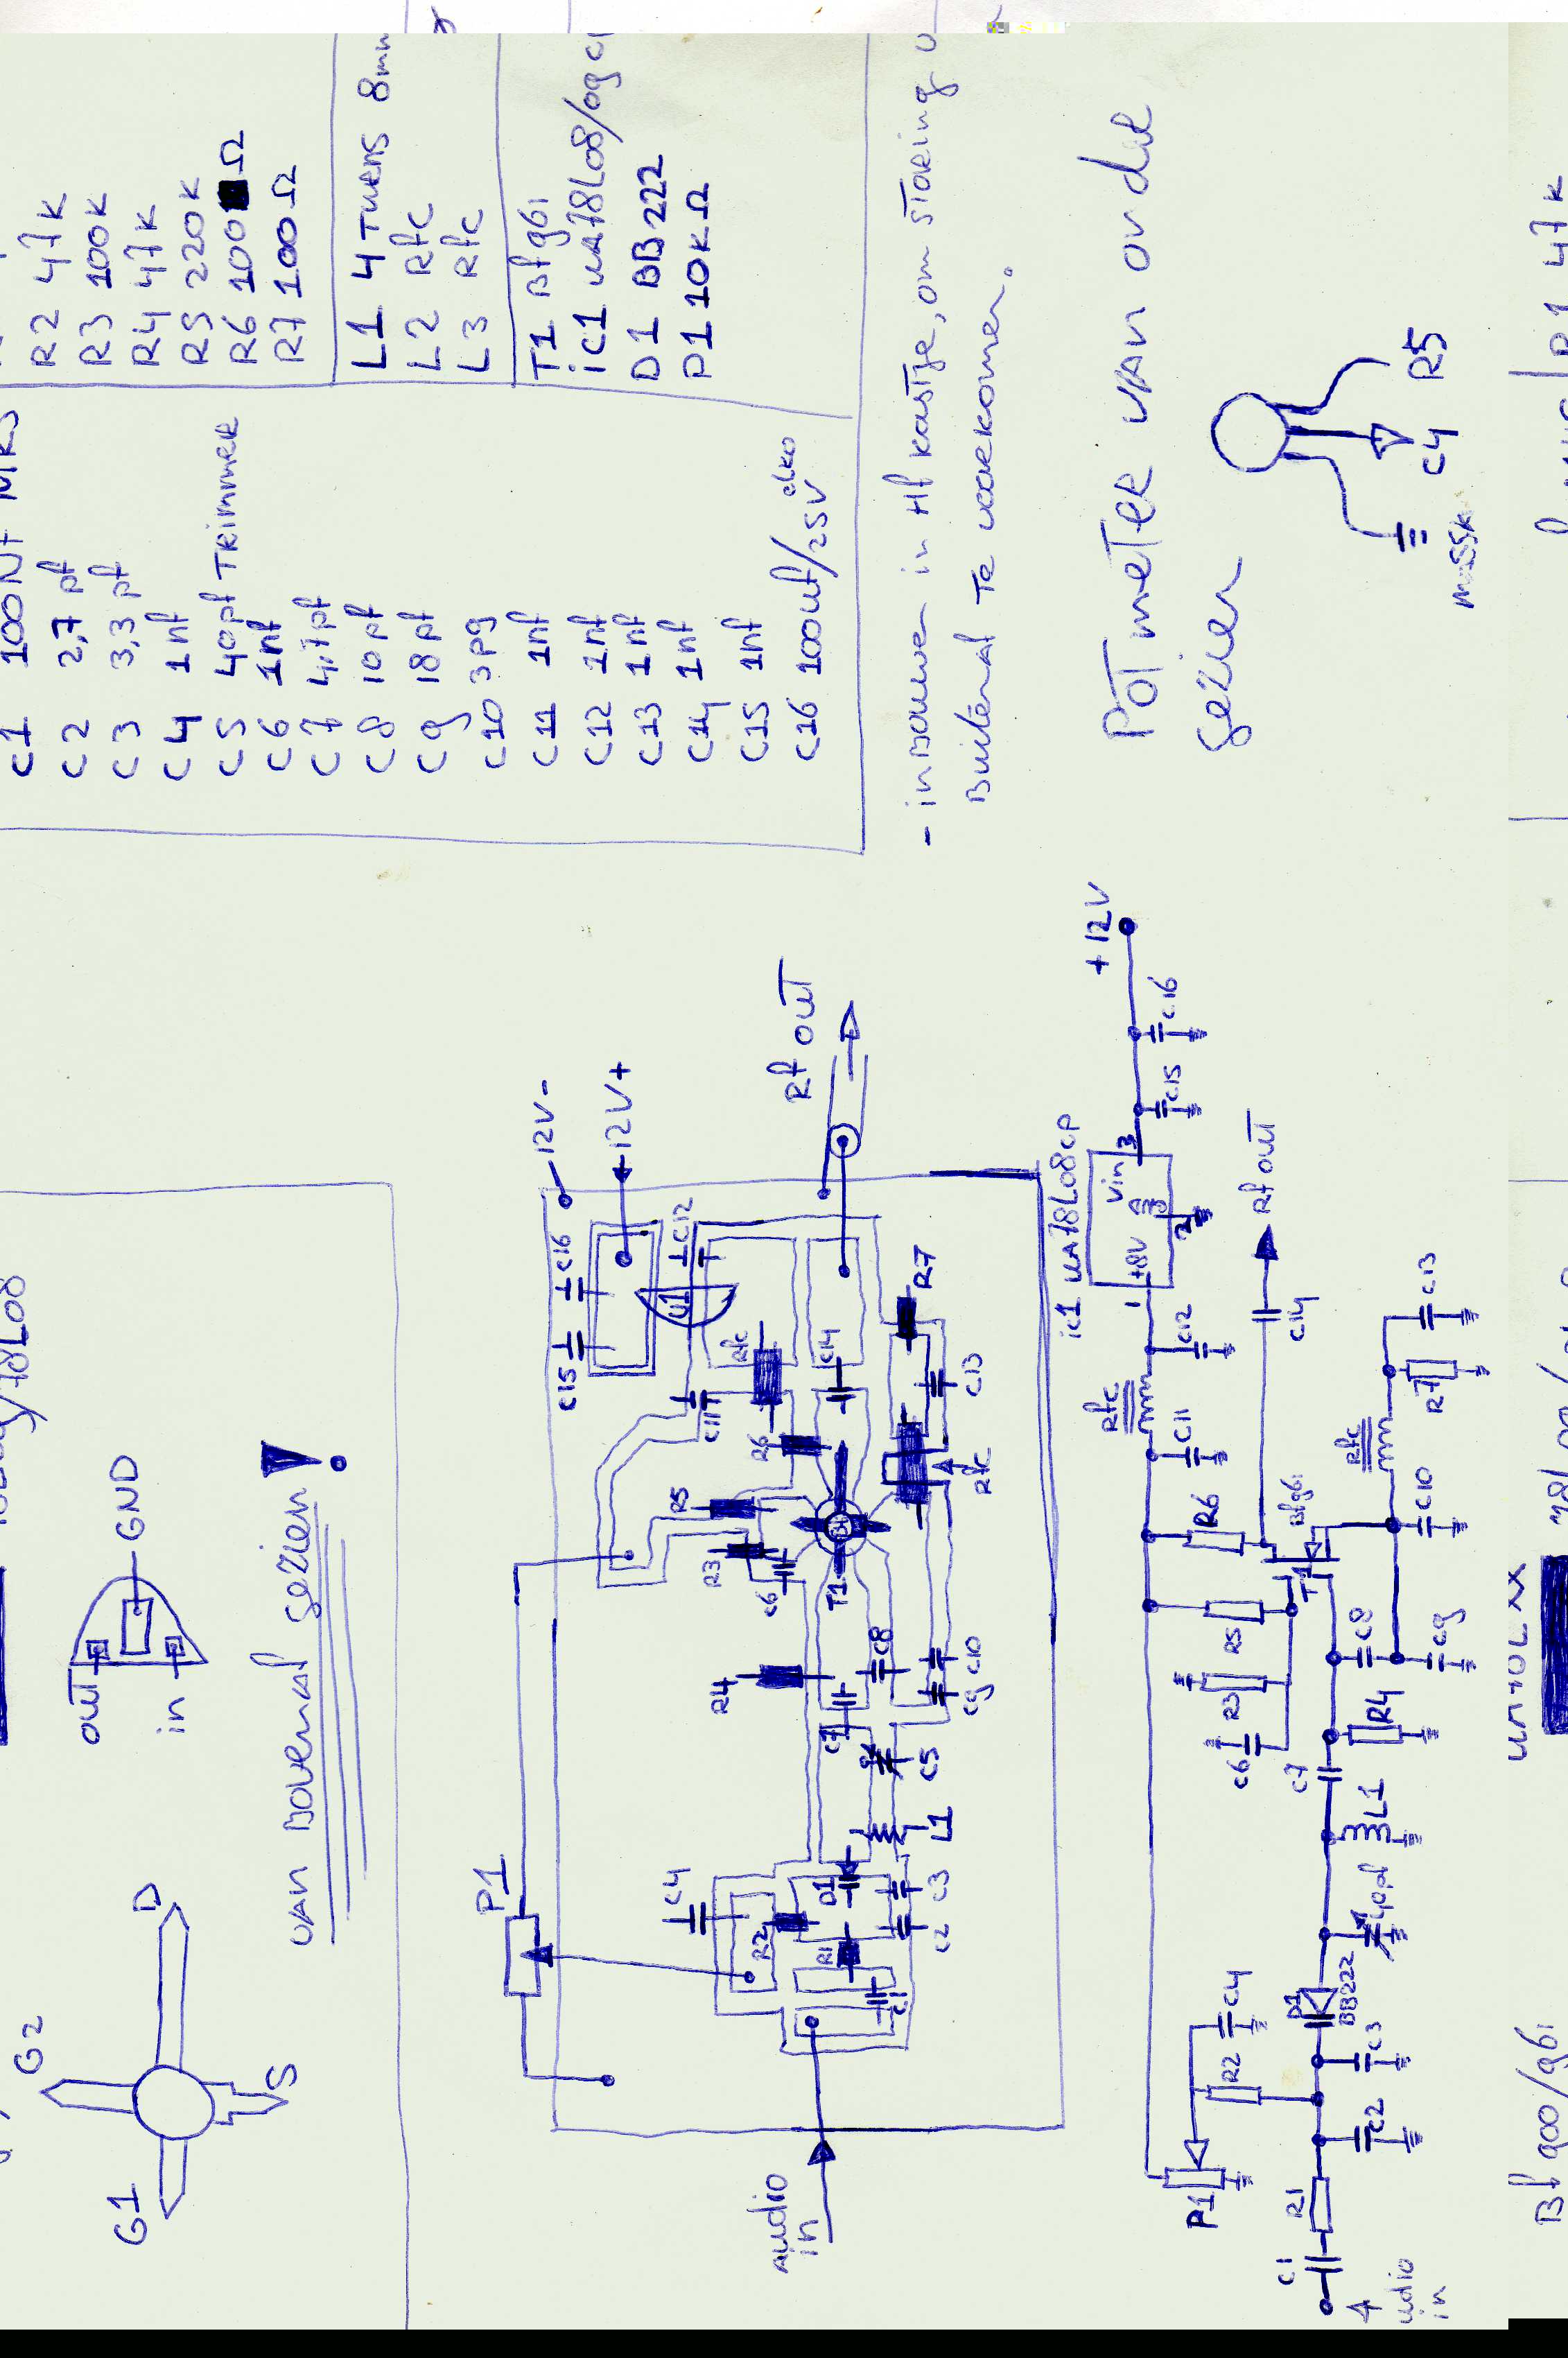 C1 100nf MKS
C2 2,7 pf
C3 3,3 pf
C4 1nf
C5 40pf TRimmer
C6 1nf
C7 4,7pf
C8 10 pf
C9 18 pf
C10 3p9
C11 1nf
C12 1nf
C13 1nf
C14 1nf
C15 1nf
C16 100uf/25V elko
R2 47K
R3 100K
R4 47K
R5 220K
R6 100 Ω
R7 100Ω
L1 4 Turns 8mm
L2 Rfc
L3 Rfc
T1 Bf961
iC1 uA78L08/09
D1 BB222
P1 10KΩ
- inBouwen in Hf kastje, om storing
Buitenaf Te voorkomen.
PoTmeTer van onder
gezien
massa
C4
R5
/78L08
out
in
GND
G1
G2
D
S
van Bovenaf gezien!
P1
audio
in
C4
R2
R1
C1
D1
C2
C3
L1
C5
C7
C8
C9
C10
R4
T1
C6
R3
R5
R6
C11
Rfc
C14
Rfc
C13
R7
C15
C16
C12
12V-
12V+
Rf out
ic1 uA78L08cp
+8V
Vin
1
2
3
+12V
C15
C16
C12
Rfc
C11
R6
R5
R3
C6
C7
R4
C8
C9
C10
T1
Bf961
C14
Rf out
Rfc
R7
C13
L1
40pf
D1
BB222
C3
C2
R2
C4
P1
R1
C1
audio
in
Bf 900/961
R1 47K